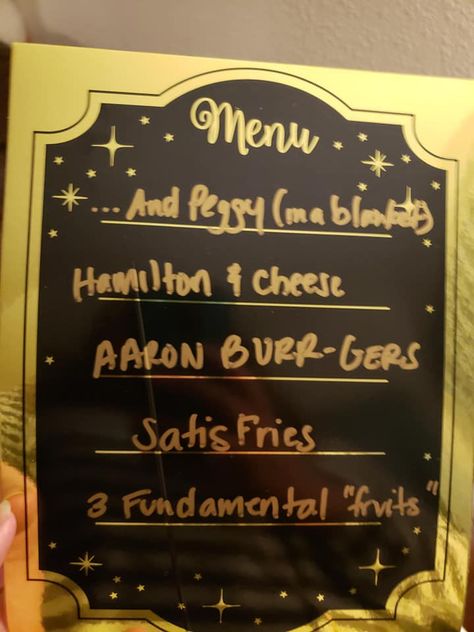 Menu
...And Peggy (in a blanket)
Hamilton & Cheese
AARON BURR-GERS
Satis Fries
3 Fundamental "fruits"